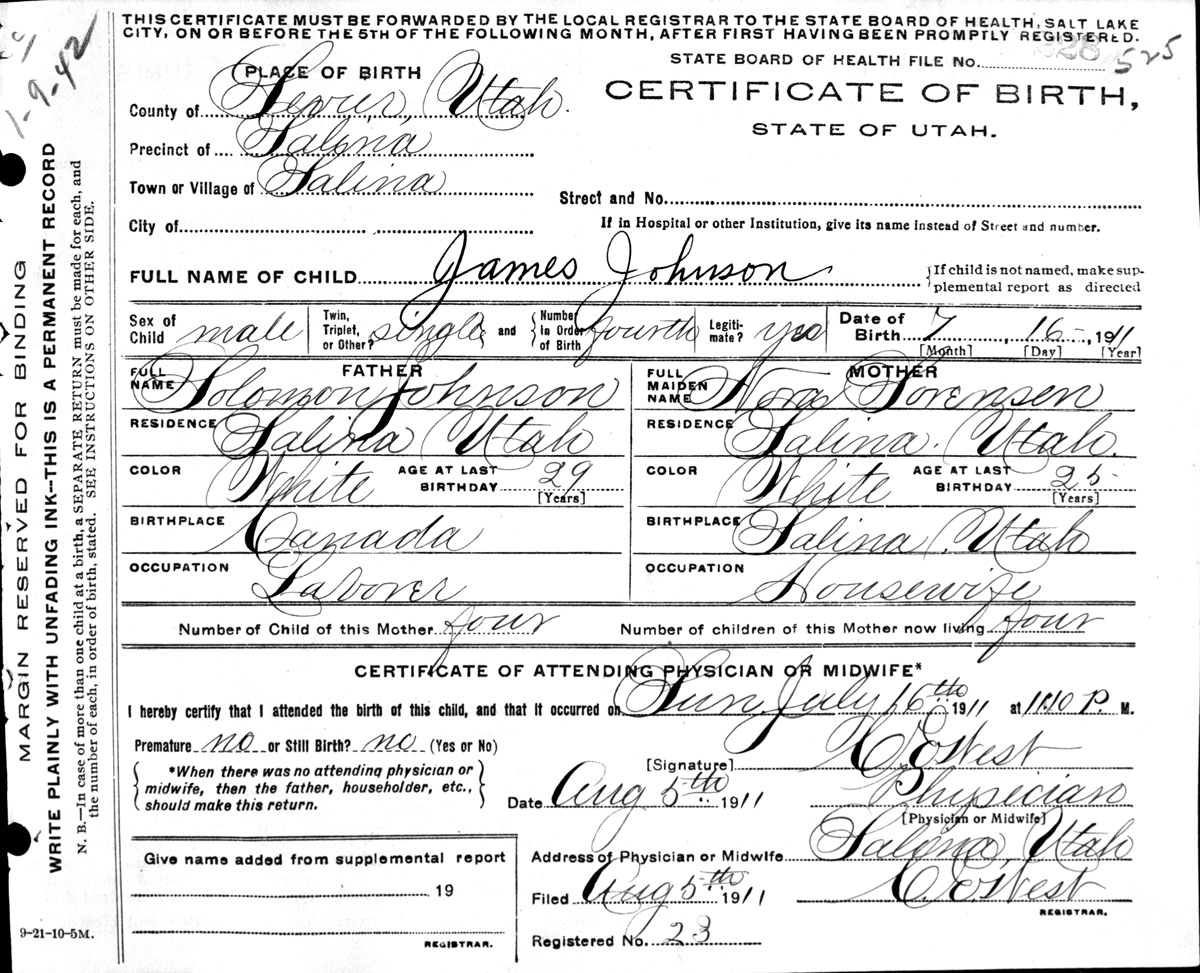 THIS CERTIFICATE MUST BE FORWARDED BY THE LOCAL REGISTRAR TO THE STATE BOARD OF HEALTH, SALT LAKE
CITY, ON OR BEFORE THE 5TH OF THE FOLLOWING MONTH, AFTER FIRST HAVING BEEN PROMPTLY REGISTERED.
1-9-42
MARGIN RESERVED FOR BINDING
WRITE PLAINLY WITH UNFADING INK--THIS IS A PERMANENT RECORD
N. B.—In case of more than one child at a birth, a SEPARATE RETURN must be made for each, and
the number of each, in order of birth, stated. SEE INSTRUCTIONS ON OTHER SIDE.
STATE BOARD OF HEALTH FILE No. 328 525
CERTIFICATE OF BIRTH,
STATE OF UTAH.
PLACE OF BIRTH
County of Sevier, Utah.
Precinct of Salina
Town or Village of Salina
Street and No.
City of
If in Hospital or other Institution, give its name instead of Street and number.
FULL NAME OF CHILD James Johnson {If child is not named, make sup-
plemental report as directed
Sex of Child male Twin, Triplet, or Other? single and {Number in Order of Birth fourth Legiti- mate? yes Date of Birth 7, 16-, 1911
[Month] [Day] [Year]
FATHER MOTHER
FULL NAME Solomon Johnson FULL MAIDEN NAME Nora Sorensen
RESIDENCE Salina Utah RESIDENCE Salina. Utah.
COLOR White AGE AT LAST BIRTHDAY 29 [Years] COLOR White AGE AT LAST BIRTHDAY 25 [Years]
BIRTHPLACE Canada BIRTHPLACE Salina, Utah
OCCUPATION Laborer OCCUPATION Housewife
Number of Child of this Mother four Number of children of this Mother now living four
CERTIFICATE OF ATTENDING PHYSICIAN OR MIDWIFE*
I hereby certify that I attended the birth of this child, and that it occurred on Sun. July 16th 1911 at 11:10 P. M.
Premature no or Still Birth? no (Yes or No)
[Signature] C. E. West
{*When there was no attending physician or
midwife, then the father, householder, etc.,
should make this return.}
Date Aug 5th 1911 Physician
[Physician or Midwife]
Give name added from supplemental report
19
REGISTRAR.
Address of Physician or Midwife Salina, Utah
Filed Aug 5th 1911 C. E. West
REGISTRAR.
Registered No. 23
9-21-10-5M.